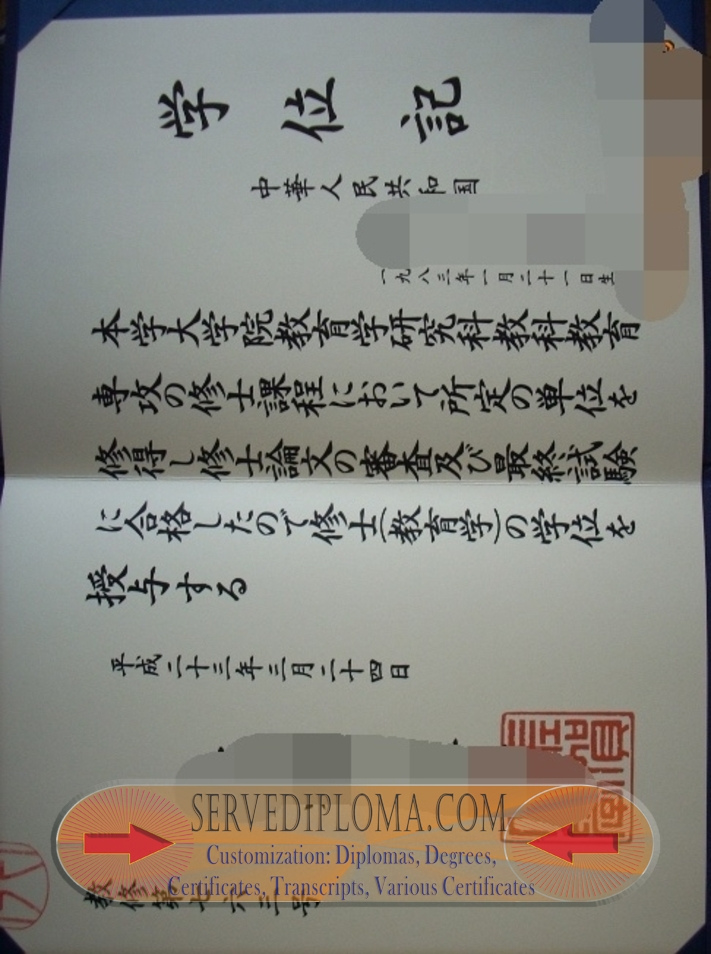 学位記
中華人民共和国
一九八三年一月二十一日生
本学大学院教育学研究科教科教育
専攻の修士課程において所定の単位を
修得し修士論文の審査及び最終試験
に合格したので修士(教育学)の学位を
授与する
平成二十三年三月二十四日
SERVEDIPLOMA.COM
Customization: Diplomas, Degrees,
Certificates, Transcripts, Various Certificates
教修第七六三号